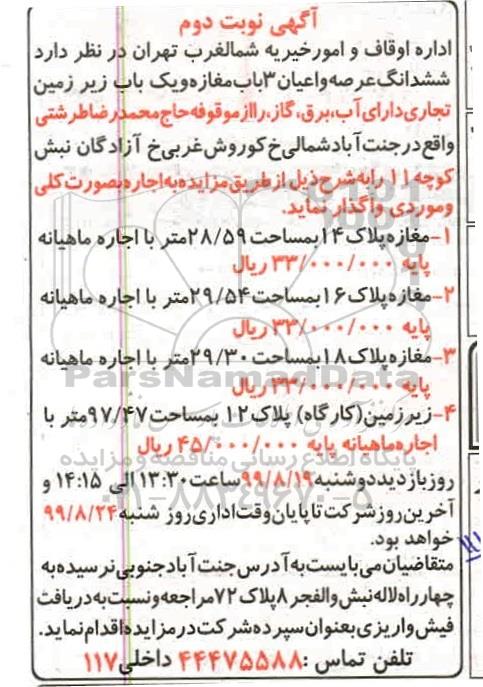 آگهی نوبت دوم
اداره اوقاف و امورخیریه شمالغرب تهران در نظر دارد
ششدانگ عرصه واعیان ۳باب مغازه ویک باب زیر زمین
تجاری دارای آب،برق،گاز،رااز موقوفه حاج محمدرضاطرشتی
واقع درجنت آبادشمالی خ کوروش غربی خ آزادگان نبش
کوچه ۱۱ رابه شرح ذیل ازطریق مزایده به اجاره بصورت کلی
وموردی واگذار نماید.
۱-مغازه پلاک ۱۴بمساحت ۲۸/۵۹متر با اجاره ماهیانه
پایه ۳۳/۰۰۰/۰۰۰ ریال
۲-مغازه پلاک ۱۶بمساحت ۲۹/۵۴متر با اجاره ماهیانه
پایه ۳۳/۰۰۰/۰۰۰ ریال
۳-مغازه پلاک ۱۸بمساحت ۲۹/۳۰متر با اجاره ماهیانه
پایه ۳۳/۰۰۰/۰۰۰ ریال
۴-زیرزمین(کارگاه) پلاک ۱۲ بمساحت ۹۷/۴۷متر با
اجاره ماهیانه پایه ۴۵/۰۰۰/۰۰۰ ریال
روزبازدیددوشنبه ۹۹/۸/۱۹ساعت ۱۳:۳۰الی ۱۴:۱۵ و
آخرین روزشرکت تاپایان وقت اداری روز شنبه ۹۹/۸/۲۴
خواهد بود.
متقاضیان می بایست به آدرس جنت آبادجنوبی نرسیده به
چهارراه لاله نبش والفجر ۸پلاک ۷۲مراجعه ونسبت به دریافت
فیش واریزی بعنوان سپرده شرکت در مزایده اقدام نماید.
تلفن تماس :۴۴۴۷۵۵۸۸ داخلی ۱۱۷
ParsNamadData
پایگاه اطلاع رسانی مناقصه و مزایده
۰۲۱-۸۸۳۴۹۶۷۰-۵